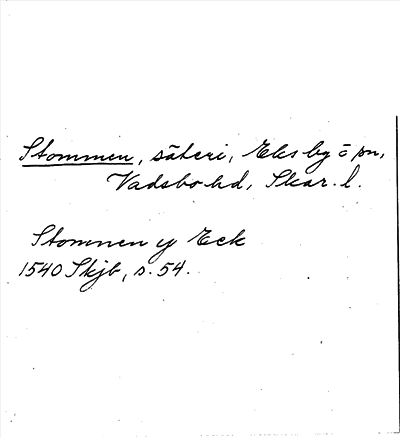 Stommen, säteri, Eksby ö pn,
Vadsbo hd, Skar. l.
Stommen y Eck
1540 Skjb, s. 54.